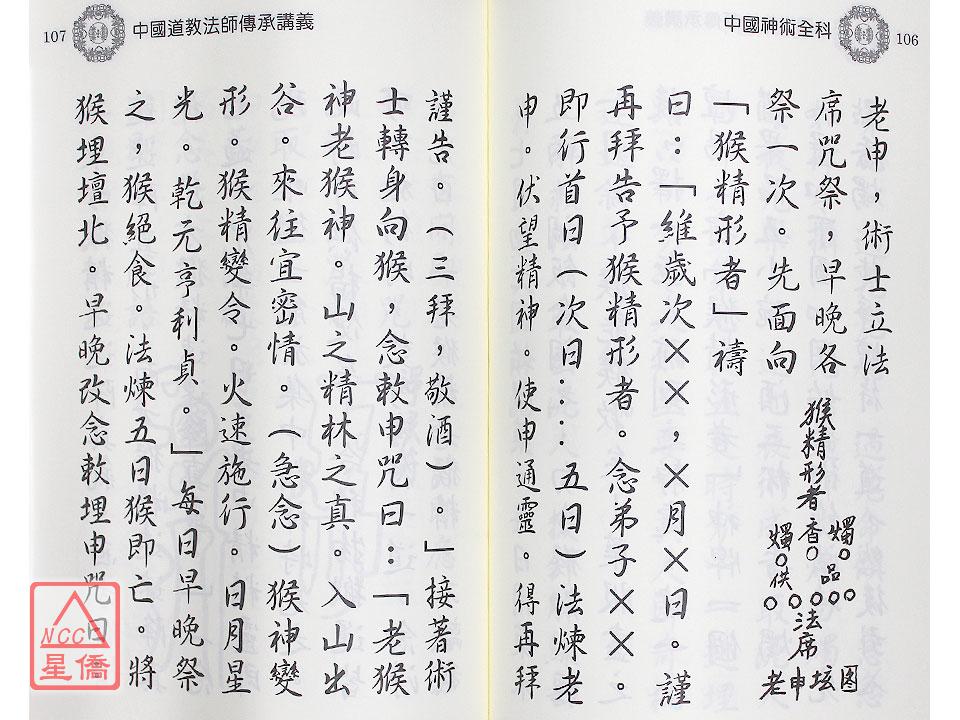 中國神術全科
106
老申，術士立法
席咒祭，早晚各
祭一次。先面向
「猴精形者」禱
曰：「維歲次××，×月×日。謹
再拜告予猴精形者。念弟子××。
即行首日（次日……五日）法煉老
申。伏望精神。使申通靈。得再拜
猴精形者
燭 香 燭
供 品
法席
老申坛图
107
中國道教法師傳承講義
謹告。（三拜，敬酒）。」接著術
士轉身向猴，念敕申咒曰：「老猴
神老猴神。山之精林之真。入山出
谷。來往宜密情。（急念）猴神變
形。猴精變令。火速施行。日月星
光。乾元亨利貞。」每日早晚祭
之，猴絕食。法煉五日猴即亡。將
猴埋壇北。早晚改念敕埋申咒曰
NCC
星僑